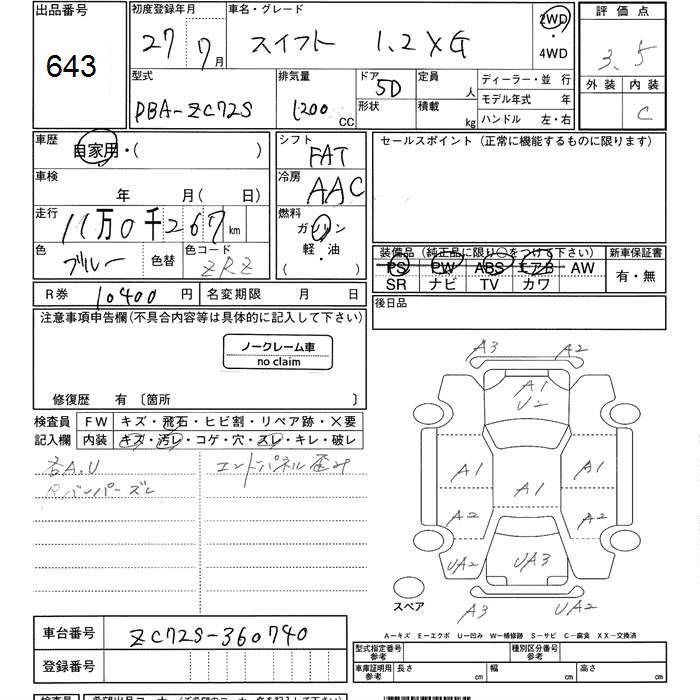 出品番号
643
初度登録年月
27年7月
車名・グレード
スイフト 1.2XG
2WD
・
4WD
評価点
3.5
外装 内装
C
型式
DBA-ZC72S
排気量
1200 CC
ドア 5D
形状
定員 人
積載 kg
ディーラー・並行
モデル年式 年
ハンドル 左・右
車歴
自家用・( )
シフト
FAT
セールスポイント (正常に機能するものに限ります)
車検
年 月(日)
冷房
AAC
走行
11万0千267km
燃料
ガソリン
軽・油
( ・ )
色
ブルー
色替
色コード
ZRZ
装備品 (純正品に限り〇をつけて下さい)
PS PW ABS エアB AW
SR ナビ TV カワ
新車保証書
有・無
R券 10400円
名変期限 月 日
後日品
注意事項申告欄(不具合内容等は具体的に記入して下さい)
ノークレーム車
no claim
修復歴 有 〔箇所 〕
検査員
記入欄
FW キズ・飛石・ヒビ割・リペア跡・×要
内装 キズ・汚レ・コゲ・穴・スレ・キレ・破レ
各A.U
Rバンパーズレ
エンドパネル歪み
A3 A2
A1
U2
A1 A1 A1
A2 A2
UA2 UA3 A2
A3 UA2
スペア
A−キズ E−エクボ U−凹み W−補修跡 S−サビ C−腐食 XX−交換済
車台番号 ZC72S-360740
登録番号
型式指定番号
参考
種別区分番号
参考
車庫証明用
参考
長さ cm 幅 cm 高さ cm